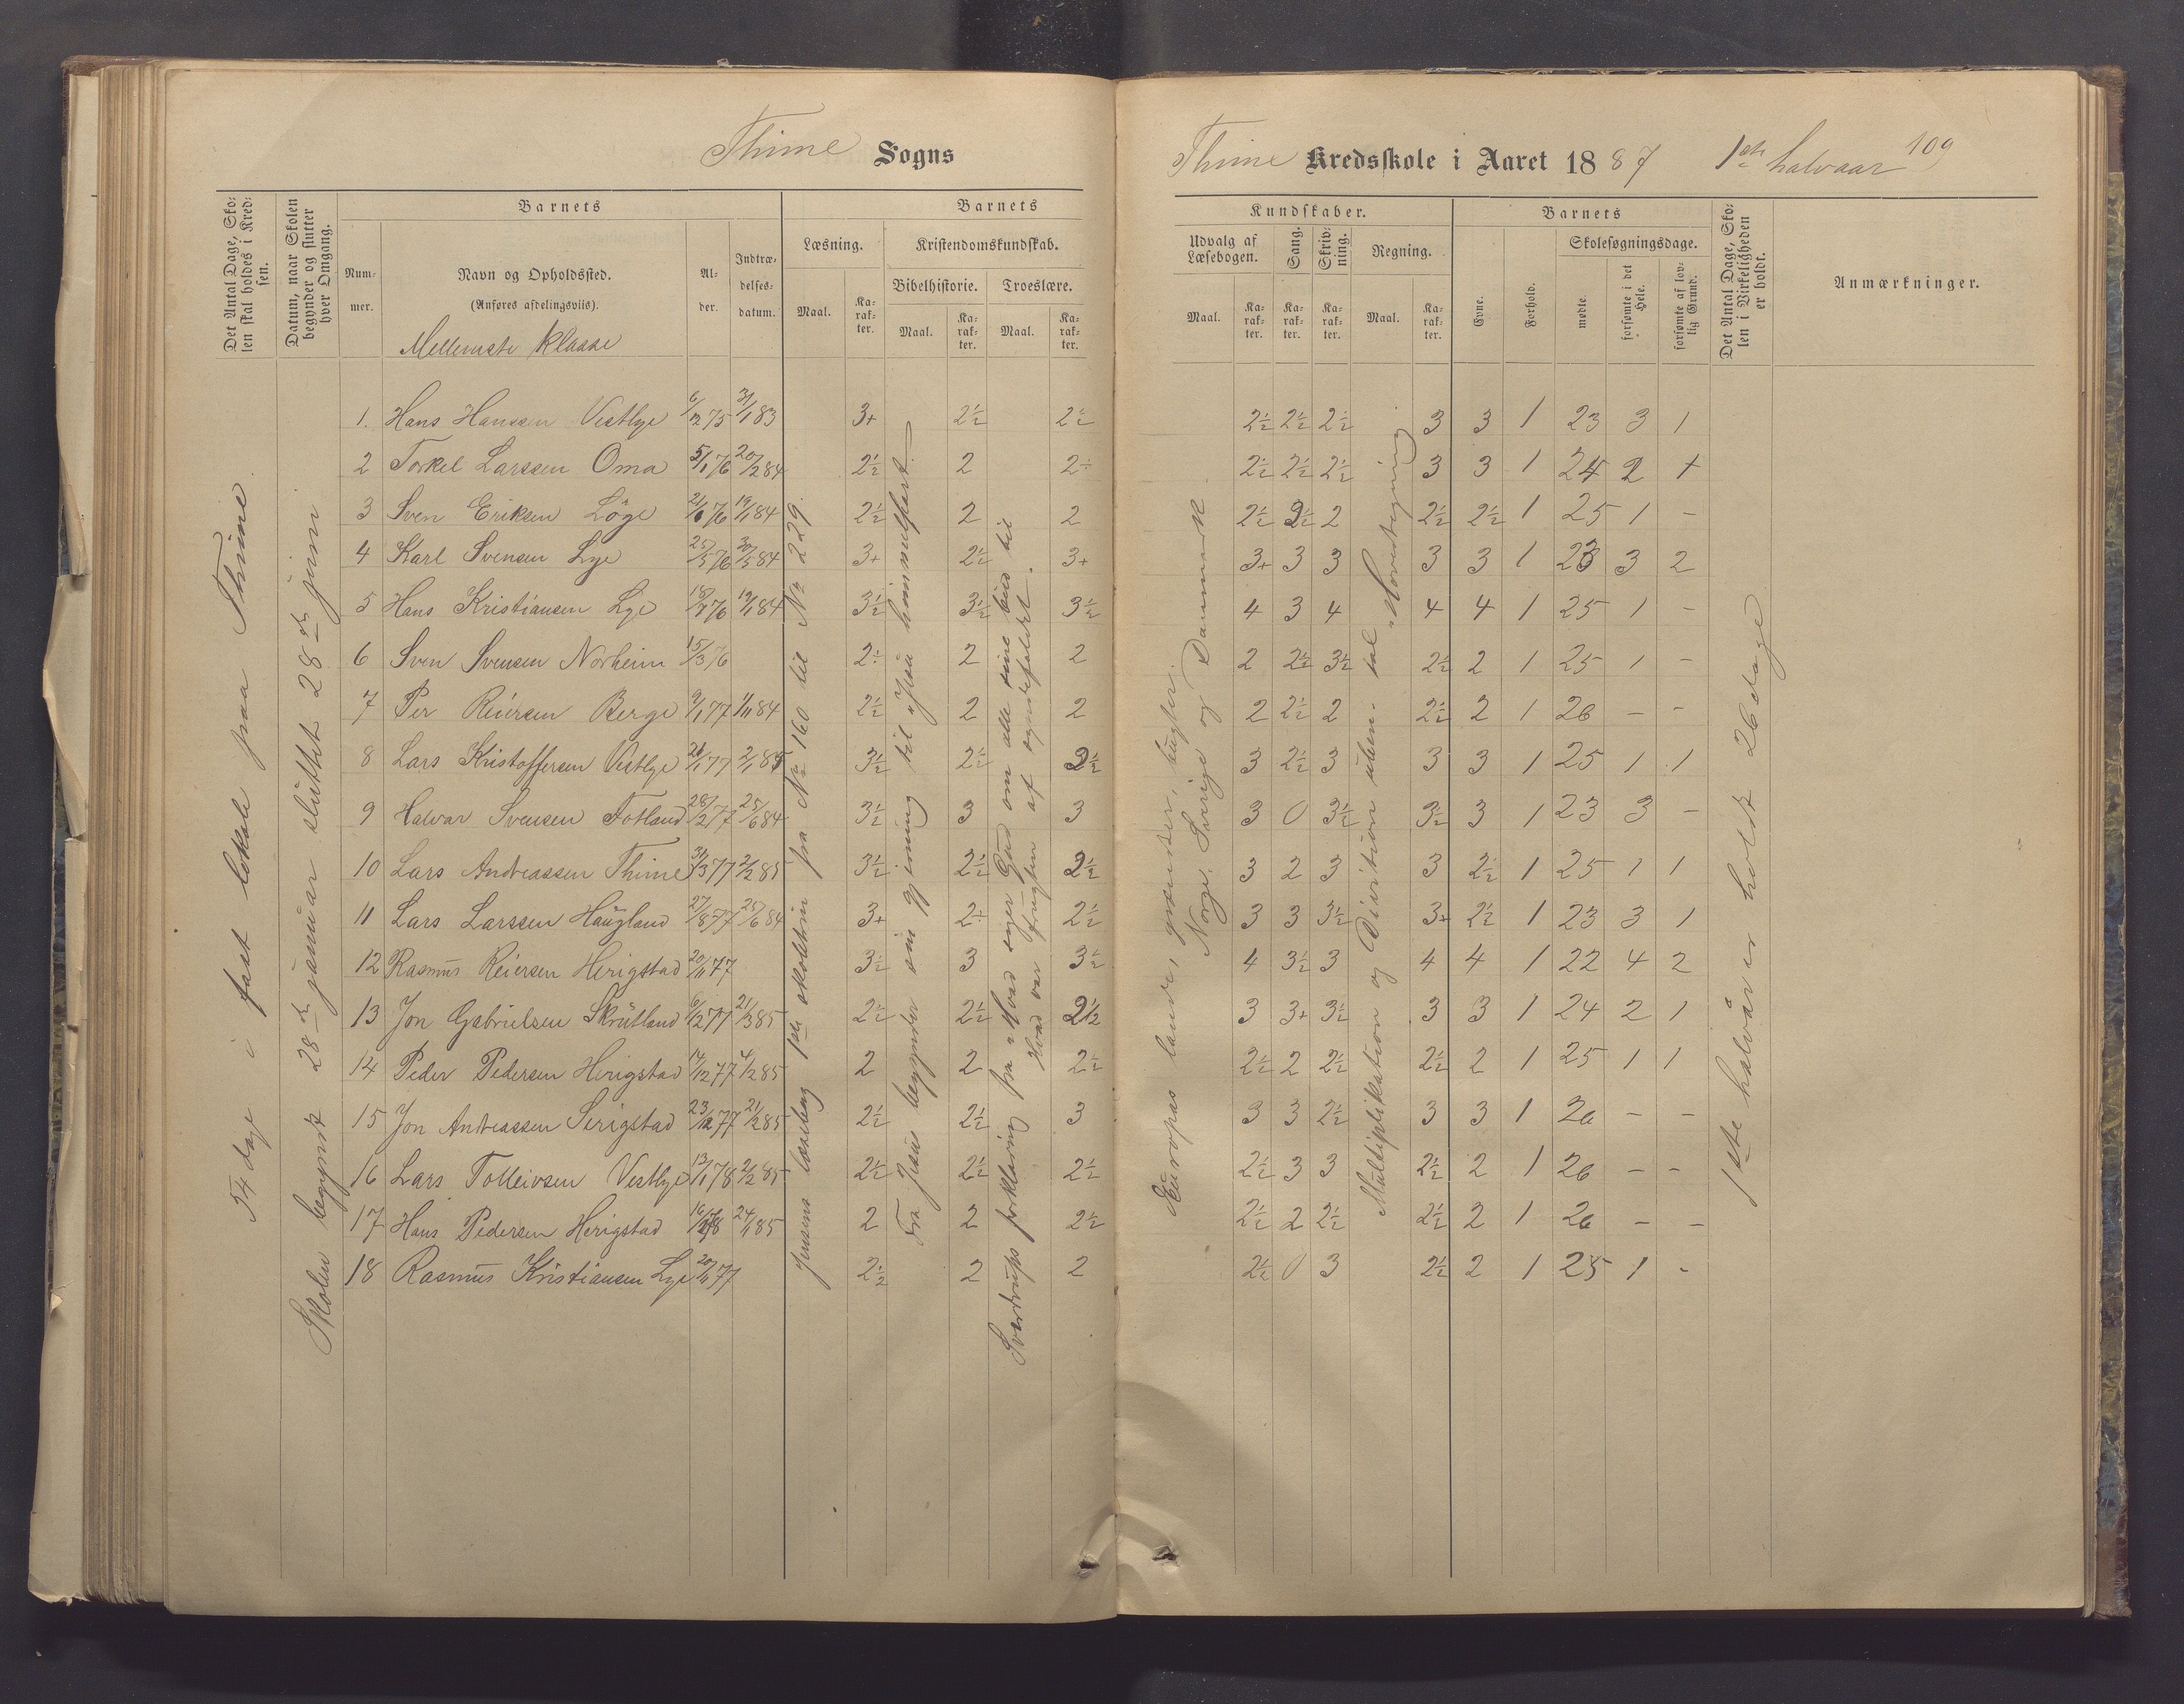 Thime Sogns
Thime Kredsskole i Aaret 1887 1ste halvaar 109
Det Antal Dage, Skolen skal holdes i Kredsen.
Datum, naar Skolen begynder og slutter hver Omgang.
Barnets
Barnets
Kundskaber.
Barnets
Det Antal Dage, Skolen i Virkeligheden er holdt.
Anmærkninger.
Nummer.
Navn og Opholdssted.
(Anføres afdelingsviis).
Mellemste Klasse
Alder.
Indtrædelsesdatum.
Læsning.
Kristendomskundskab.
Bibelhistorie. Troeslære.
Maal. Karakter. Maal. Karakter. Maal. Karakter.
Udvalg af Læsebogen. Sang. Skrivning. Regning.
Maal. Karakter. Karakter. Karakter. Maal. Karakter.
Evne. Forhold. Skolesøgningsdage.
mødte. forsømte i det Hele. forsømte af lovlig Grund.
54 dage i fast lokale paa Thime.
Skolen begyndt 28de januar sluttet 28de juni
Jensens læsebog 1ste skoletrin fra No 160 til No 229.
Fra Jesus begynder sin gjerning til "Jesu himmelfart."
Sverdrups forklaring fra "Hvad siger Gud om alle sine bud" til
Hvad var frugten af syndefaldet.
Europas lande, grændser, bugter.
Norge, Sverige og Danmark.
Multiplikation og Division uben. tal "Hovedregning
1ste halvår er holdt 26 dage
1. Hans Hanssen Vestlye 6/12 75 31/1 83 3+ 2½ 2½ 2½ 2½ 2½ 3 3 1 23 3 1
2 Torkel Larssen Oma 5/1 76 20/2 84 2½ 2 2÷ 2½ 2½ 2½ 3 3 1 24 2 1
3 Sven Eriksen Löge 21/1 76 19/1 84 2½ 2 2 2½ 2½ 2 2½ 2½ 1 25 1 -
4 Karl Svensen Lye 25/5 76 30/5 84 3+ 2½ 3+ 3+ 3 3 3 3 1 23 3 2
5 Hans Kristiansen Lye 18/7 76 19/1 84 3½ 3½ 3½ 4 3 4 4 4 1 25 1 -
6 Sven Svensen Norheim 15/3 76 2÷ 2 2 2 2½ 3½ 2½ 2 1 25 1 -
7 Per Reiersen Berge 9/1 77 1/11 84 2½ 2 2 2 2½ 2 2½ 2 1 26 - -
8 Lars Kristoffersen Vestlye 21/1 77 2/1 85 3½ 2½ 2½ 3 2½ 3 3 3 1 25 1 1
9 Halvar Svensen Fotland 28/2 77 25/6 84 3½ 3 3 3 0 3½ 3½ 3 1 23 3 -
10 Lars Andreassen Thime 31/3 77 2/2 85 3½ 2½ 2½ 3 2 3 3 2½ 1 25 1 1
11 Lars Larssen Haugland 27/8 77 25/6 84 3+ 2÷ 2½ 3 3 3½ 3+ 2½ 1 23 3 1
12 Rasmus Reiersen Herigstad 20/11 77 3½ 3 3½ 4 3½ 3 4 4 1 22 4 2
13 Jon Gabrielsen Skrutland 6/12 77 21/3 85 2½ 2½ 2½ 3 3+ 3½ 3 3 1 24 2 1
14 Peder Pedersen Herigstad 14/12 77 4/2 85 2 2 2½ 2½ 2 2½ 2½ 2 1 25 1 1
15 Jon Andreassen Serigstad 23/12 77 21/2 85 2½ 2½ 3 3 3 2½ 3 3 1 26 - -
16 Lars Tolleivsen Vestlye 13/1 78 2/2 85 2½ 2½ 2½ 2½ 3 3 2½ 2 1 26 - -
17 Hans Pedersen Herigstad 78 24/1 85 2 2 2½ 2½ 2 2½ 2½ 2 1 26 - -
18 Rasmus Kristiansen Lye 20/11 77 2½ 2 2 2½ 0 3 2½ 2 1 25 1 -